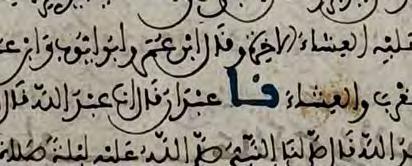 عليه العشاء الاخرة وقال ابن عمر وابو ايوب وابن عبا
مغرب والعشاء نا عبدان قال انا عبد الله قال
عبد الله قال صلى لنا النبي صلى الله عليه ليلة صلاة